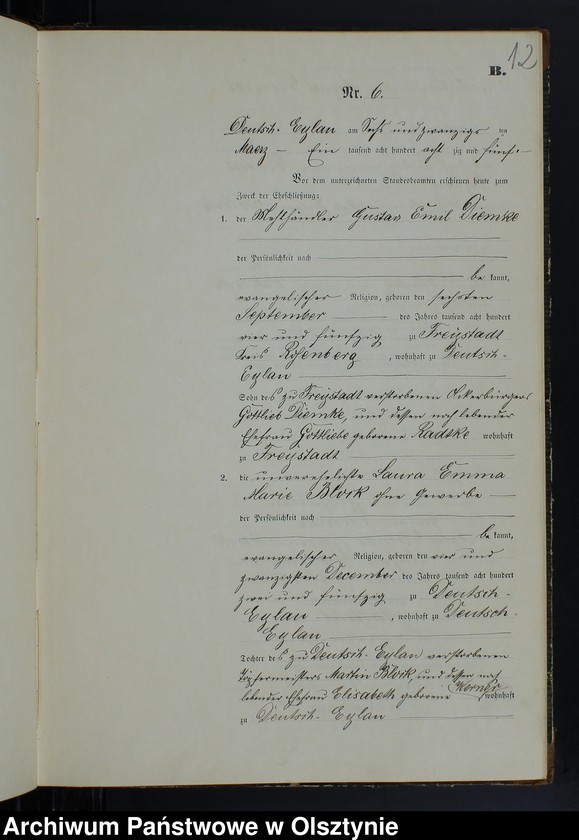 12
B.
Nr. 6.
Deutsch-Eylau am Sechs und zwanzigs ten
Maerz – Ein tausend acht hundert acht zig und fünf.
Vor dem unterzeichneten Standesbeamten erschienen heute zum
Zweck der Eheschließung:
1. der Mehlhändler Gustav Emil Diemke
der Persönlichkeit nach
be kannt,
evangelischer Religion, geboren den sechsten
September des Jahres tausend acht hundert
vier und fünfzig zu Freystadt
Kreis Rosenberg, wohnhaft zu Deutsch-
Eylau
Sohn des zu Freystadt verstorbenen Ackerbürgers
Gottlieb Diemke, und dessen noch lebender
Ehefrau Gottliebe geborene Radtke wohnhaft
zu Freystadt
2. die unverehelichte Laura Emma
Marie Block ohne Gewerbe –
der Persönlichkeit nach
be kannt,
evangelischer Religion, geboren den vier und
zwanzigsten December des Jahres tausend acht hundert
zwei und fünfzig zu Deutsch-
Eylau, wohnhaft zu Deutsch-
Eylau
Tochter des zu Deutsch-Eylau verstorbenen
Töpfermeisters Martin Block, und dessen noch
lebender Ehefrau Elisabeth geborene Werner wohnhaft
zu Deutsch-Eylau
Archiwum Państwowe w Olsztynie